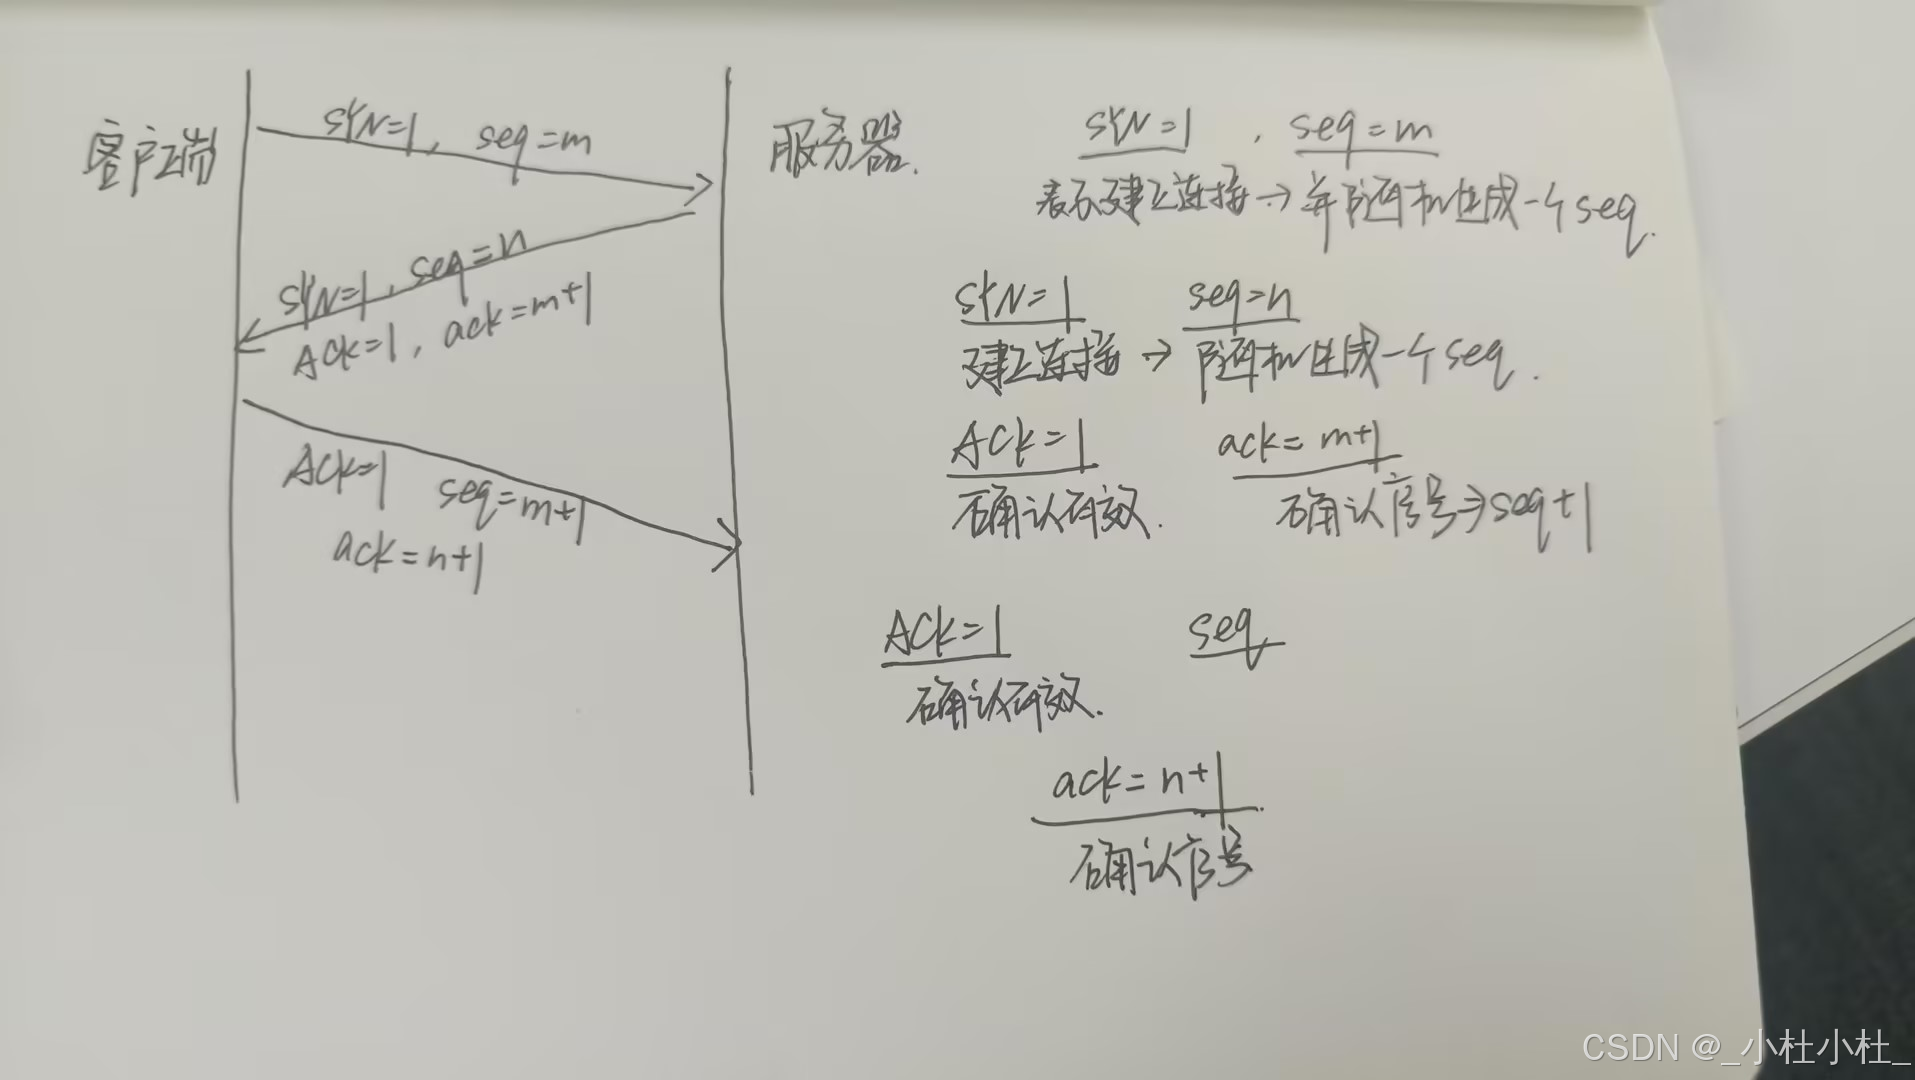 客户端
SYN=1, seq=m
服务器.
SYN=1, seq=n
ACK=1, ack=m+1
ACK=1 seq=m+1
ack=n+1
SYN=1 , seq=m
表示建立连接→并随机生成一个seq.
SYN=1 seq=n
建立连接→随机生成一个seq.
ACK=1 ack=m+1
确认有效. 确认序号⇒seq+1
ACK=1 seq
确认有效.
ack=n+1
确认序号
CSDN @_小杜小杜_